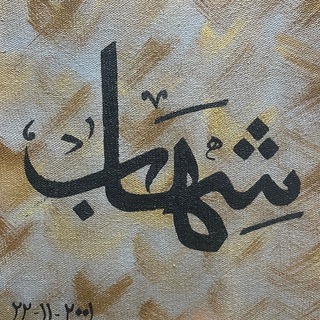 شِهَاب
٢٢-١١-٢٠٠١